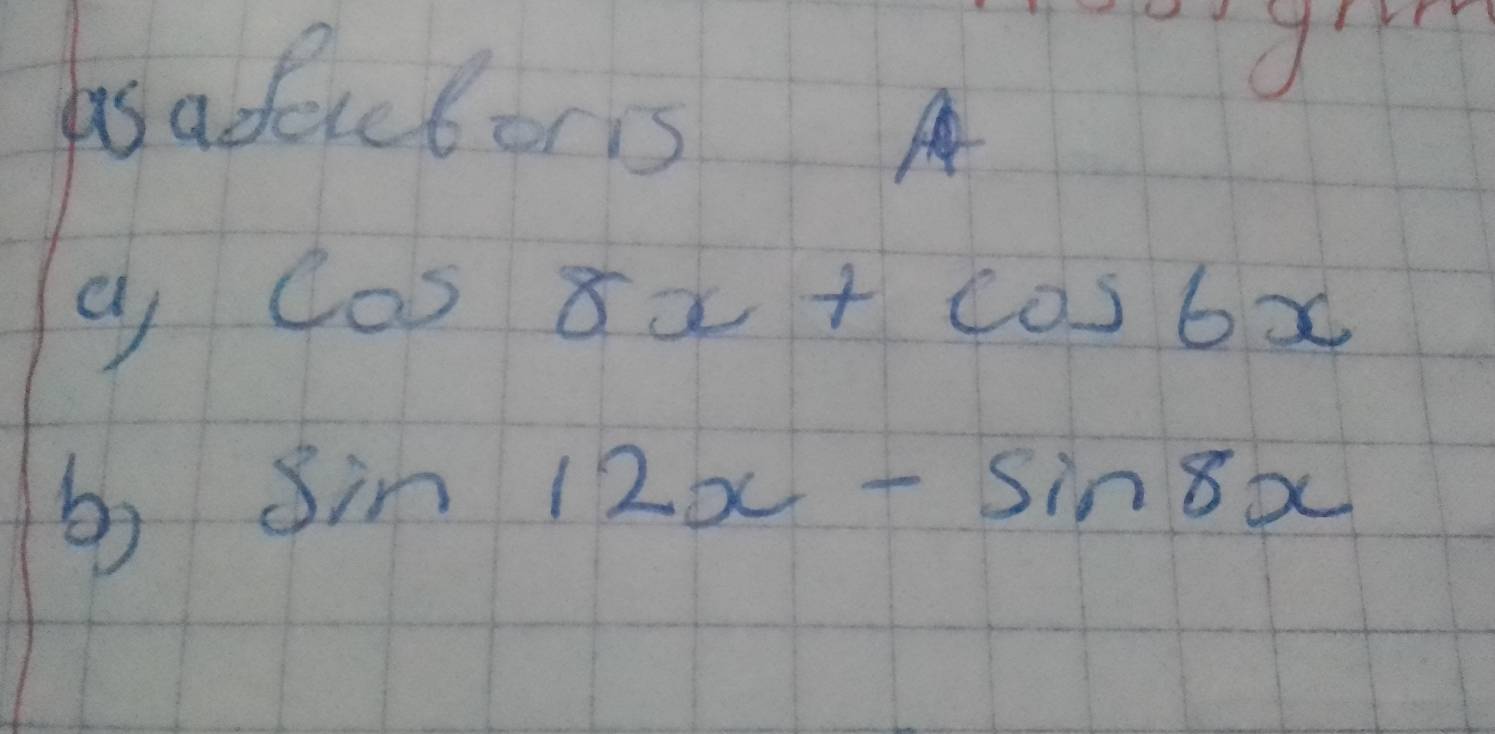 as a factor is A
a, Cos 8x + cos 6x
b, Sin 12x - sin 8x